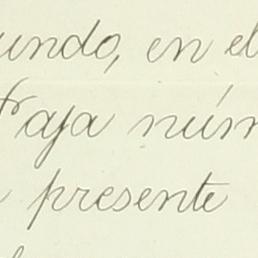 undo, en el
faja núm
presente